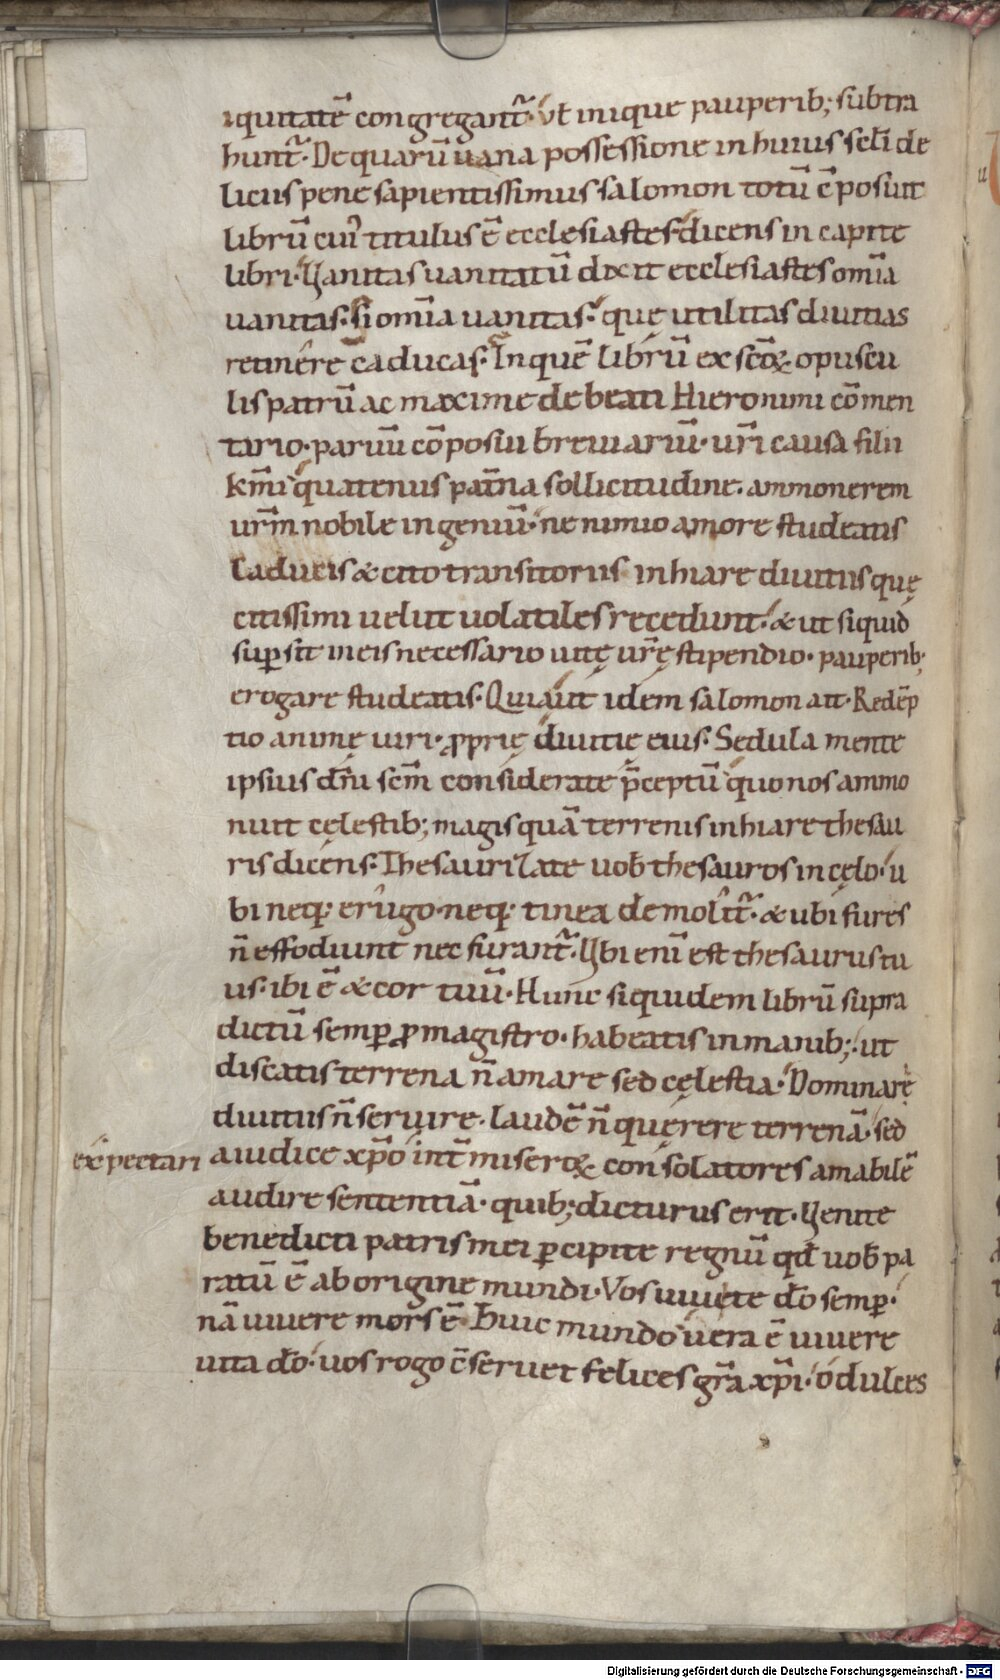 iquitatē congregant᷑. Vt inique pauperib; subtra
hunt᷑. De quarū uana possessione in huius scl̄i de
liciis pene sapientissimus salomon totū ɔ̄posuit
librū cui᷒ titulus ē ecclesiastes. dicens in capite
libri. Vanitas uanitatū dixit ecclesiastes om̄ia
uanitas. si om̄ia uanitas. quę utilitas diuitias
retinere caducas. In quē librū ex sc̄oꝝ opuscu
lis patrū ac maxime de beati Hieronimi cōmen
tario. paruū cōposui breuiariū. ur̄i causa filii
km̄i quatenus pat̄na sollicitudine. ammonerem
ur̄m nobile ingeniū. ne nimio amore studeatis
Caducis & cito transitoriis inhiare diuitiis quę
citissimi uelut uolatiles recedunt. & ut siquid
suꝑsit in eis necessario uitę ur̄ę stipendio. pauperib;
erogare studeatis. Quia ut idem salomon ait. Redēp
tio animę uiri. ꝓprię diuitie eius. Sedula mente
ipsius dn̄i sc̄m considerate p̄ceptū quo nos ammo
nuit cęlestib; magis quā terrenis inhiare thesau
ris dicens. Thesaurizate uob̄ thesauros in cęlo. u
bi neq; erugo neq; tinea demolit᷑. & ubi fures
n̄ effodiunt nec furant᷑. Vbi enī est thesaurus tu
us. ibi ē & cor tuū. Hunc siquidem librū supra
dictū semꝑ ꝓ magistro. habeatis in manib; ut
discatis terrena n̄ amare sed cęlestia. Dominarę
diuitiis n̄ seruire. laudē n̄ quęrere terrenā. sed
expectari a iudice xp̄o int̄ miseroꝝ consolatores amabilē
audire sententiā. quib; dicturus erit. Venite
benedicti patris mei ꝑcipite regnū qd̄ uob̄ pa
ratū ē ab origine mundi. Vos uiuete dō semꝑ.
nā uiuere mors ē huic mundo uera ē uiuere
uita dō. uos rogo c̄seruet felices gr̄a xp̄i. o dulces
Digitalisierung gefördert durch die Deutsche Forschungsgemeinschaft - DFG